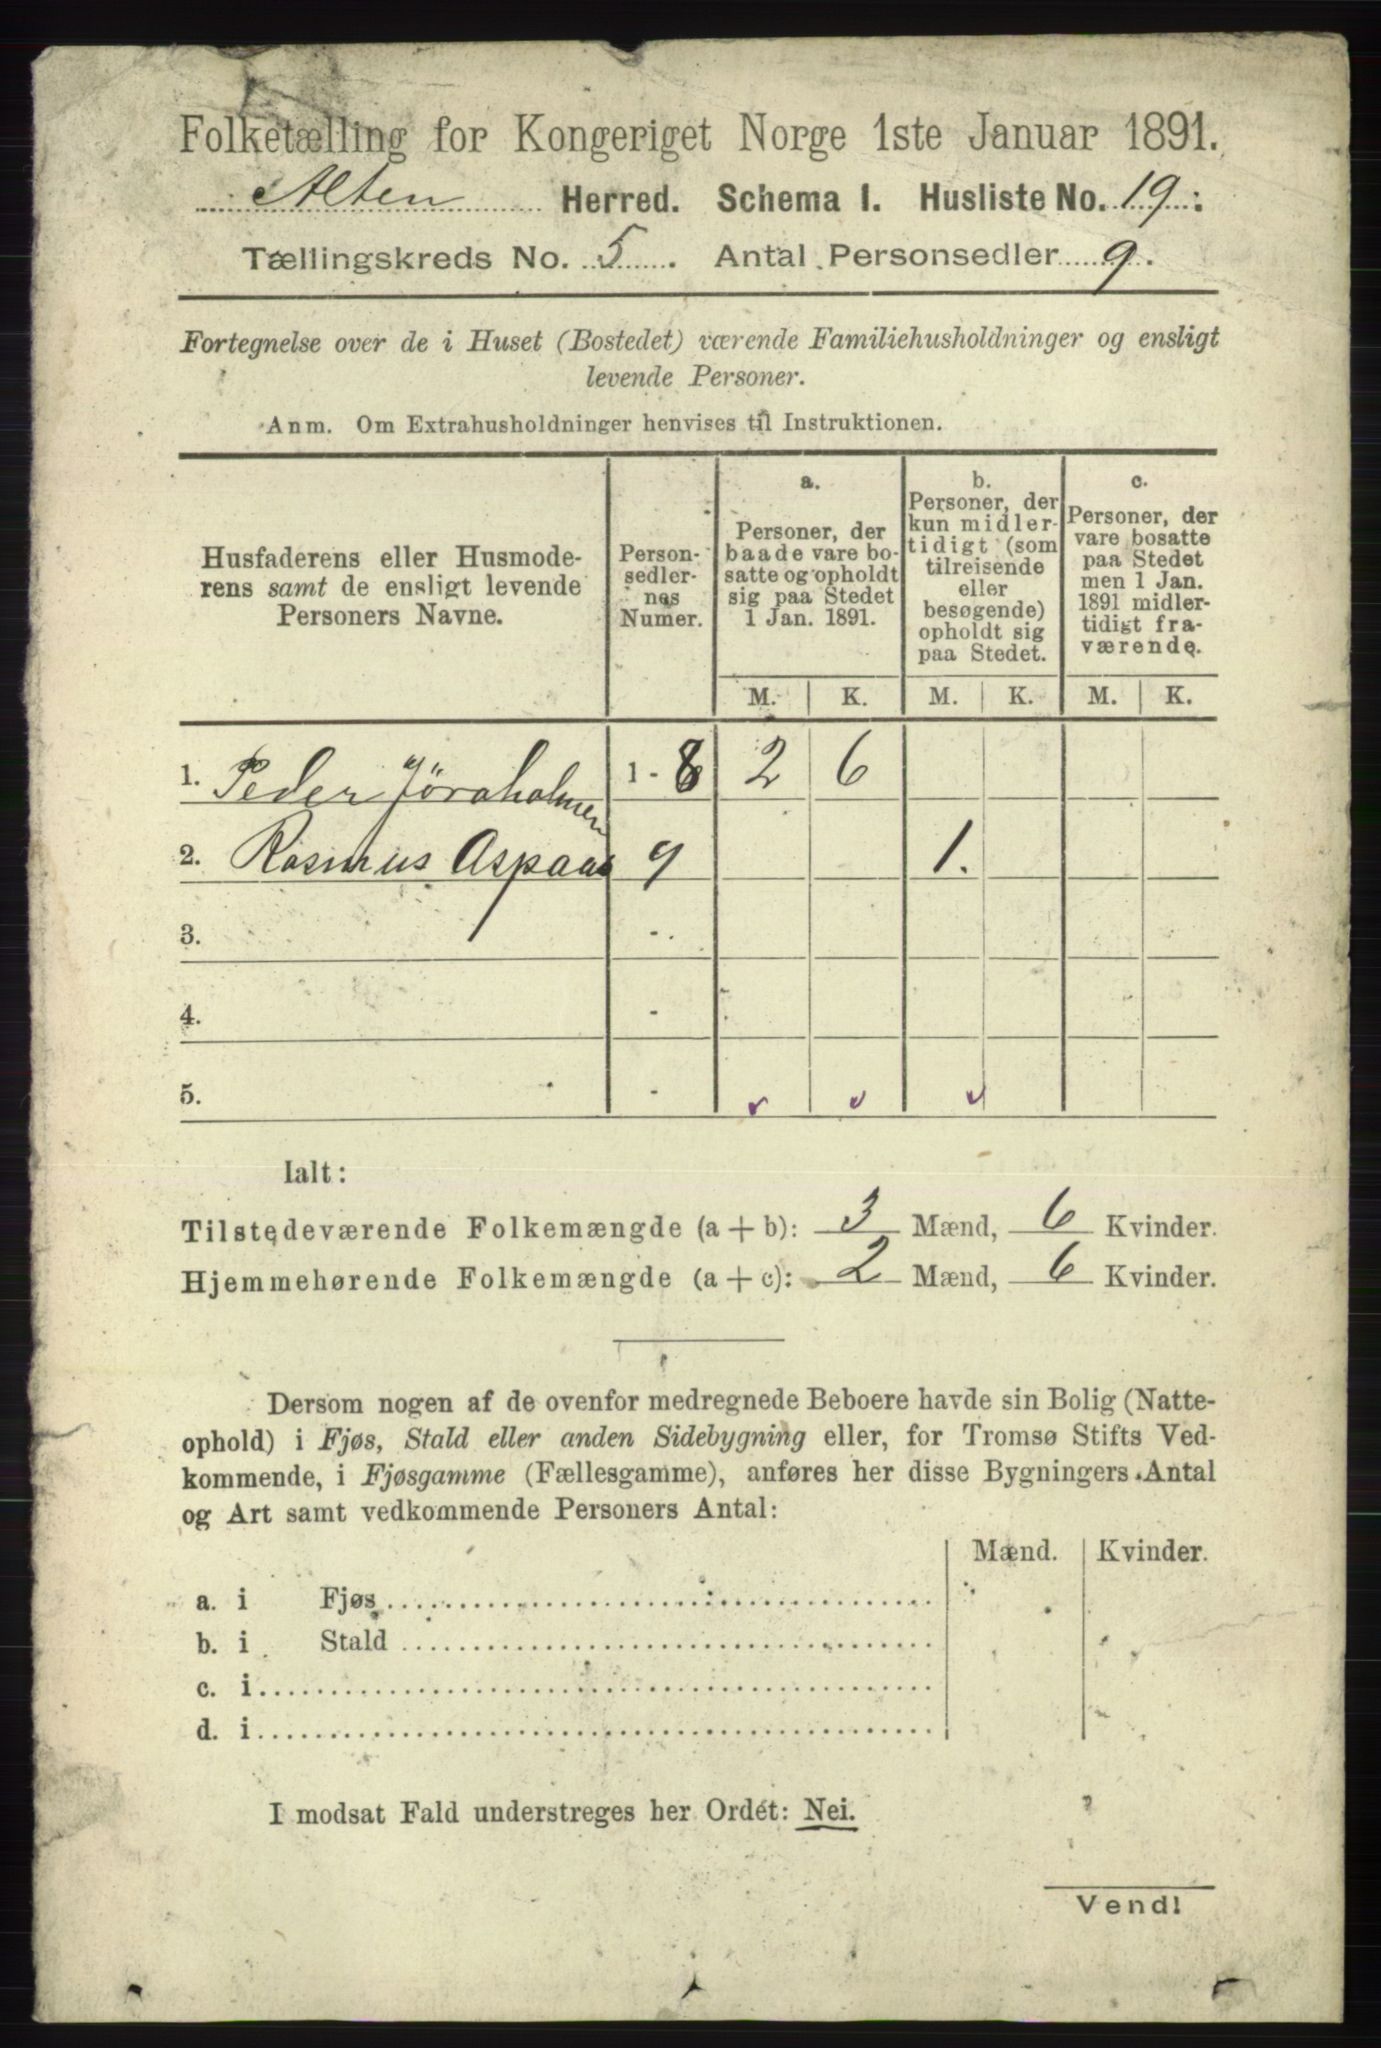 Folketælling for Kongeriget Norge 1ste Januar 1891.
Alten Herred. Schema I. Husliste No. 19.
Tællingskreds No. 5. Antal Personsedler 9.
Fortegnelse over de i Huset (Bostedet) værende Familiehusholdninger og ensligt
levende Personer.
Anm. Om Extrahusholdninger henvises til Instruktionen.
Husfaderens eller Husmode-
rens samt de ensligt levende
Personers Navne.
Person-
sedler-
nes
Numer.
a.
Personer, der
baade vare bo-
satte og opholdt
sig paa Stedet
1 Jan. 1891.
b.
Personer, der
kun midler-
tidigt (som
tilreisende
eller
besøgende)
opholdt sig
paa Stedet.
c.
Personer, der
vare bosatte
paa Stedet
men 1 Jan.
1891 midler-
tidigt fra-
værende.
M. K. M. K. M. K.
1. Peder Jöraholmen 1 - 8 2 6
2. Rasmus Aspaas 9 1.
3. -
4. -
5. -
Ialt:
Tilstedeværende Folkemængde (a + b): 3 Mænd, 6 Kvinder.
Hjemmehørende Folkemængde (a + c): 2 Mænd, 6 Kvinder.
Dersom nogen af de ovenfor medregnede Beboere havde sin Bolig (Natte-
ophold) i Fjøs, Stald eller anden Sidebygning eller, for Tromsø Stifts Ved-
kommende, i Fjøsgamme (Fællesgamme), anføres her disse Bygningers Antal
og Art samt vedkommende Personers Antal:
Mænd. Kvinder.
a. i Fjøs
b. i Stald
c. i
d. i
I modsat Fald understreges her Ordet: Nei.
Vend!